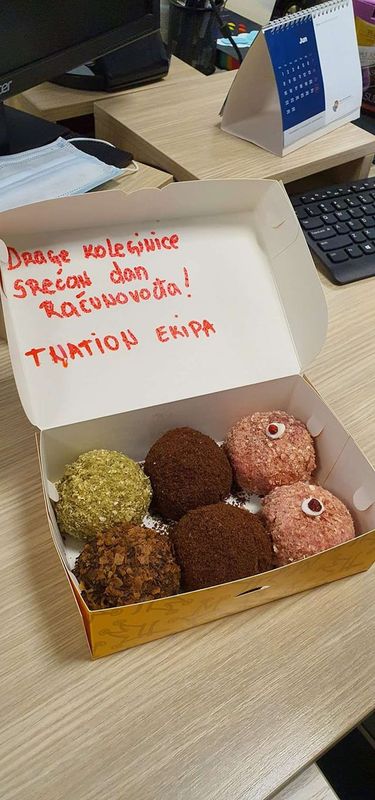 acer
Jun
DRAGE KOLEGINICE
SREĆAN DAN
RAČUNOVOĐA!
TNATION EKIPA